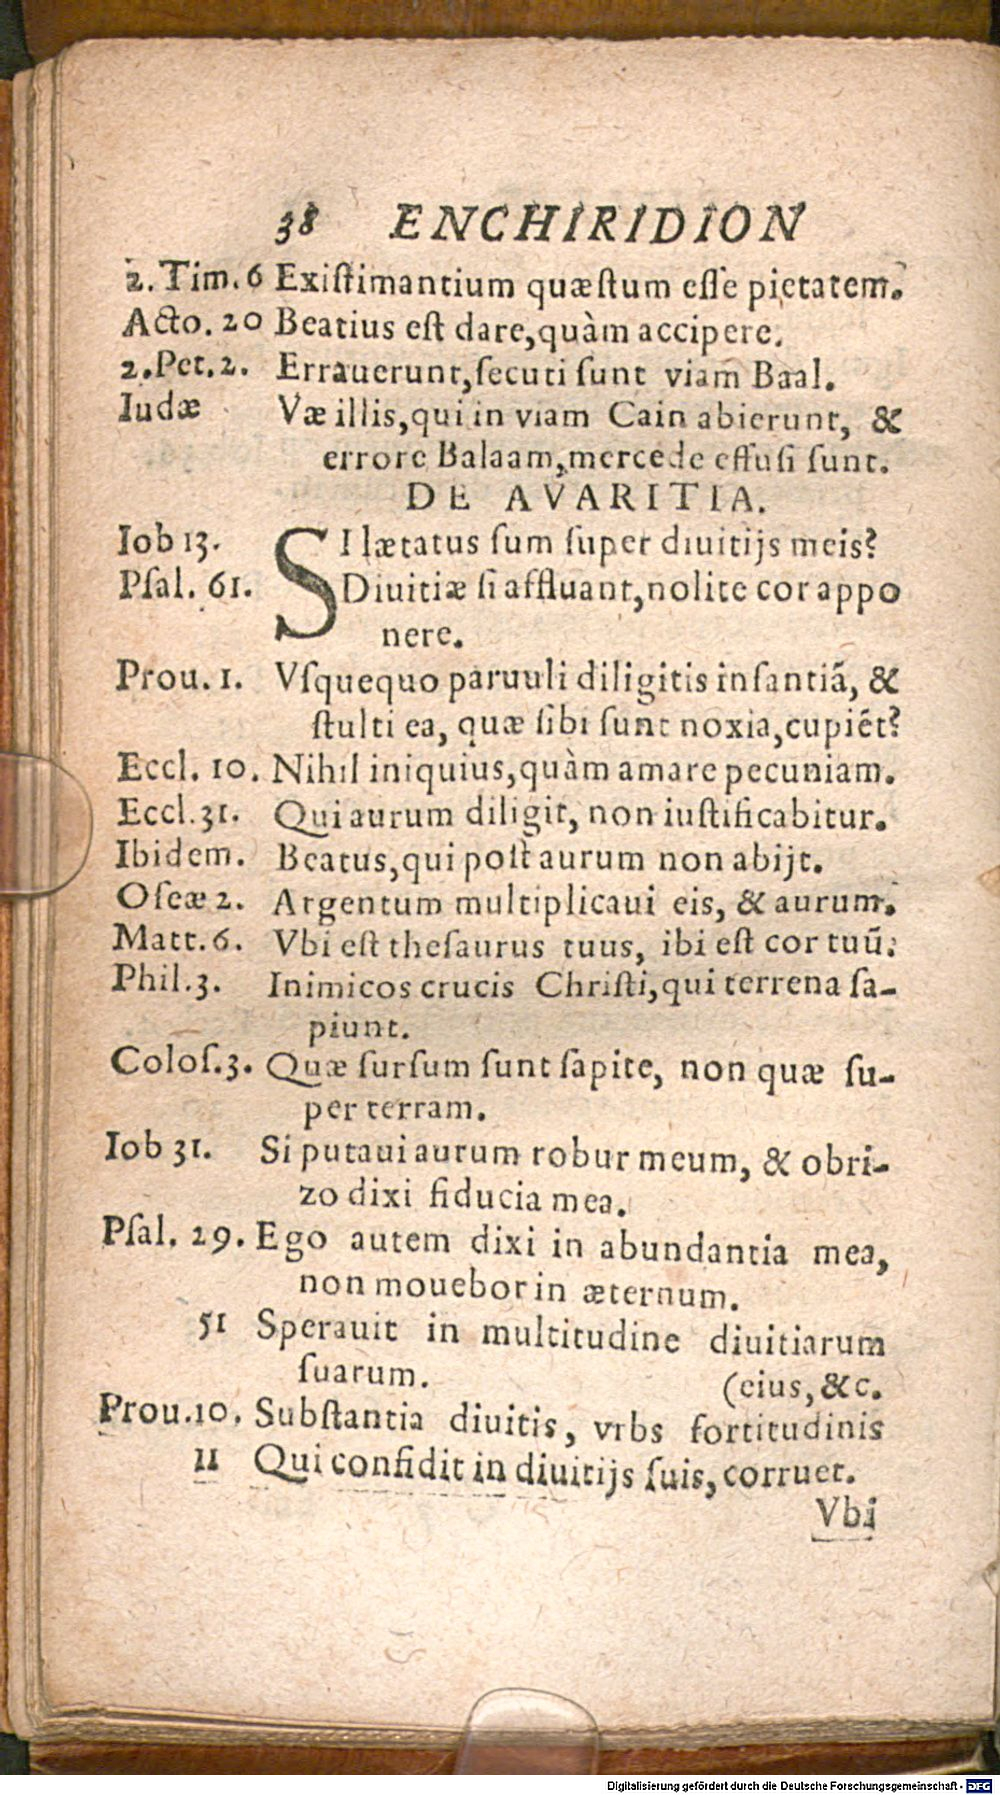 38 ENCHIRIDION
2. Tim. 6 Existimantium quæstum esse pietatem.
Acto. 20 Beatius est dare, quàm accipere.
2. Pet. 2. Errauerunt, secuti sunt viam Baal.
Iudæ Væ illis, qui in viam Cain abierunt, &
errore Balaam, mercede effusi sunt.
DE AVARITIA.
Iob 13. SI lætatus sum super diuitijs meis?
Psal. 61. Diuitiæ si affluant, nolite cor appo
nere.
Prou. 1. Vsquequo paruuli diligitis infantiã, &
stulti ea, quæ sibi sunt noxia, cupiẽt?
Eccl. 10. Nihil iniquius, quàm amare pecuniam.
Eccl. 31. Qui aurum diligit, non iustificabitur.
Ibidem. Beatus, qui post aurum non abijt.
Oseæ 2. Argentum multiplicaui eis, & aurum.
Matt. 6. Vbi est thesaurus tuus, ibi est cor tuũ.
Phil. 3. Inimicos crucis Christi, qui terrena sa-
piunt.
Colos. 3. Quæ sursum sunt sapite, non quæ su-
per terram.
Iob 31. Si putaui aurum robur meum, & obri-
zo dixi fiducia mea.
Psal. 29. Ego autem dixi in abundantia mea,
non mouebor in æternum.
51 Sperauit in multitudine diuitiarum
suarum. (eius, &c.
Prou. 10. Substantia diuitis, vrbs fortitudinis
11 Qui confidit in diuitijs suis, corruet.
Vbi
Digitalisierung gefördert durch die Deutsche Forschungsgemeinschaft - DFG